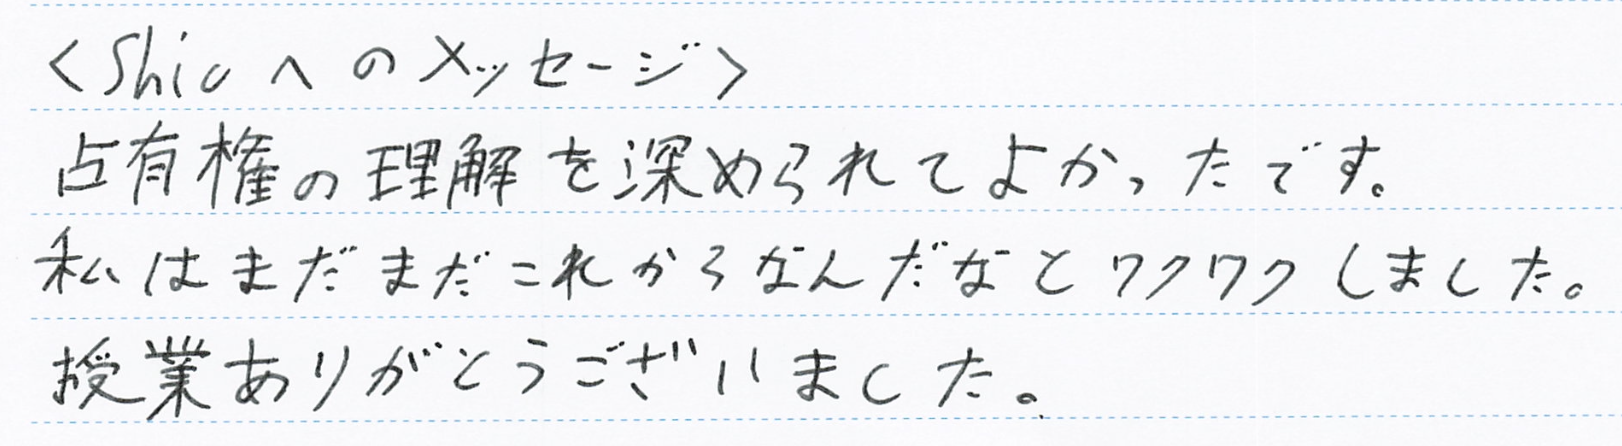 <Shioへのメッセージ>
占有権の理解を深められてよかったです。
私はまだまだこれからなんだなとワクワクしました。
授業ありがとうございました。